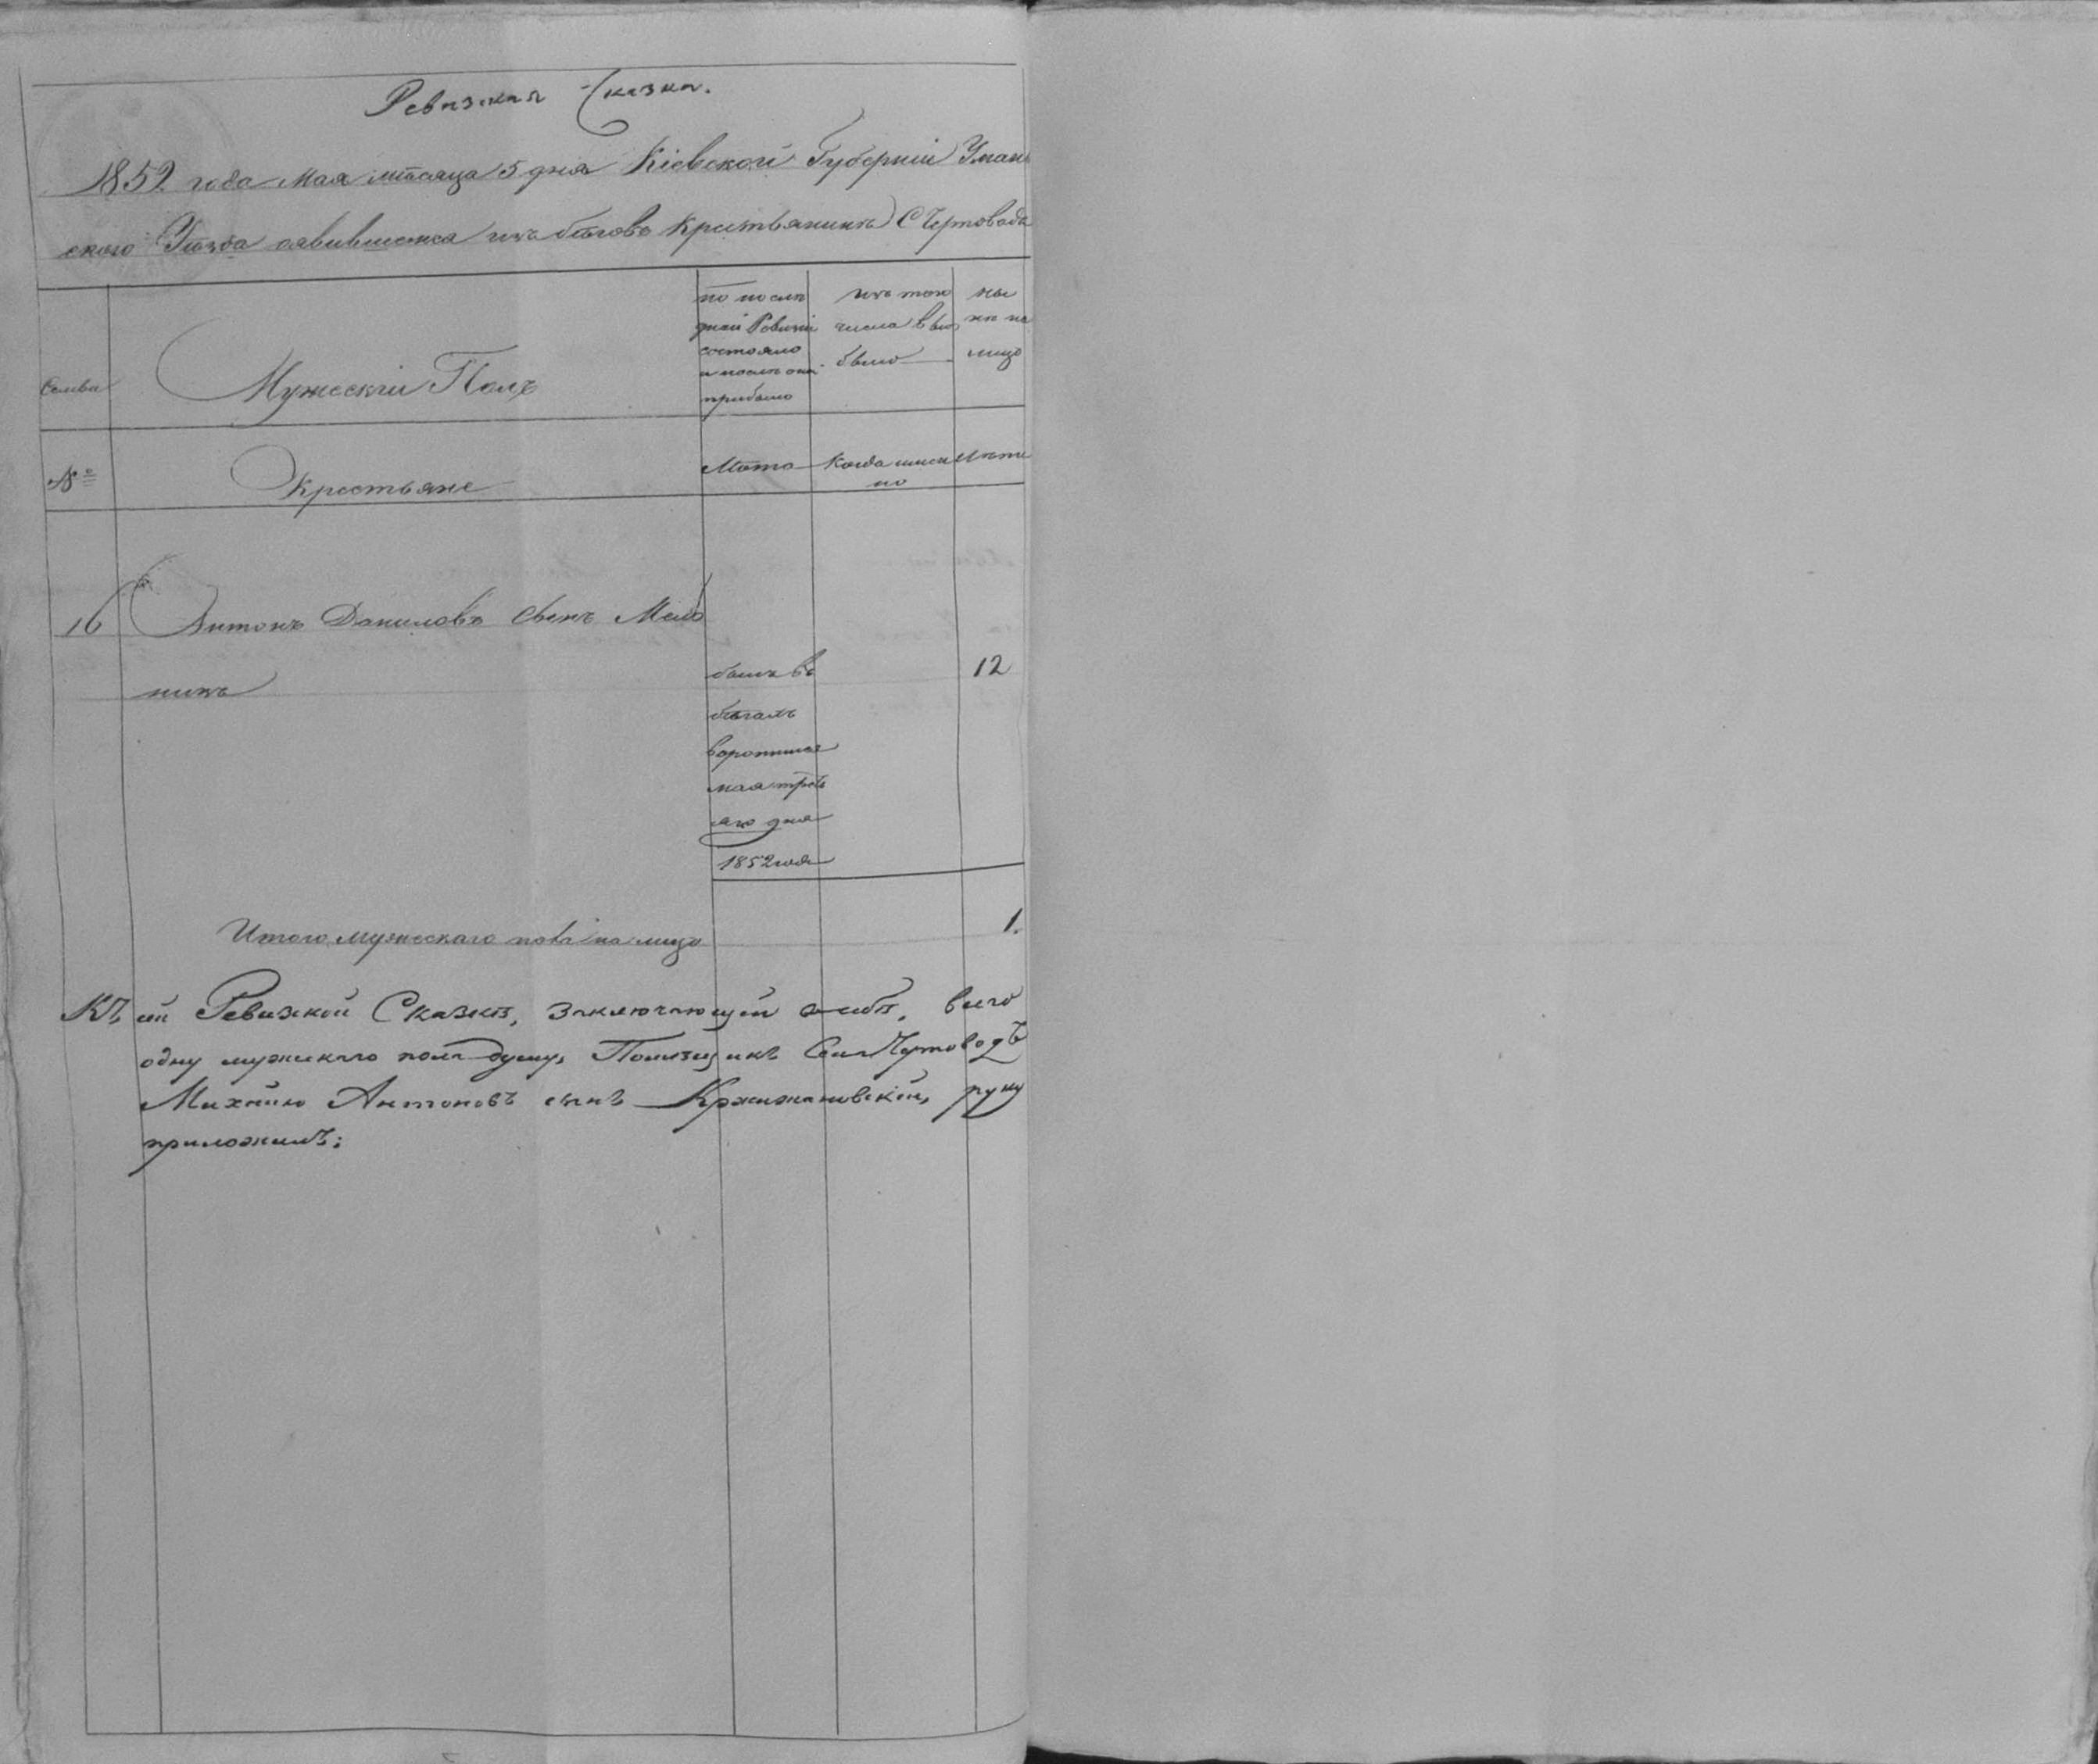 Ревизская Сказка.
1852 года Мая мѣсяца 5 дня Кіевской Губерніи Уман
ского Уѣзда оявившемся изъ бѣговъ крестьянинѣ С Чертовода
Семьи
Мужескій Полъ
по послѣ
дней Ревизіи
состояло
и послѣ она
прибыло
изъ того
числа вы
было
ны
нѣ на
лицо
№
Крестьяне
Лѣта
Когда имен
но
Лѣта
16 Антонъ Даниловъ сынъ Мель
никъ
былъ въ
бѣгахъ
воротился
мая треть
яго дня
1852 года
12
Итого мужескаго пола на лицо 1.
Къ сей Ревизской Сказкѣ, заключающей в себѣ, всего
одну мужскаго пола душу, Помѣщикъ Села Чертоводъ
Михайло Антоновъ сынъ Кржижановскій, руку
приложилъ: